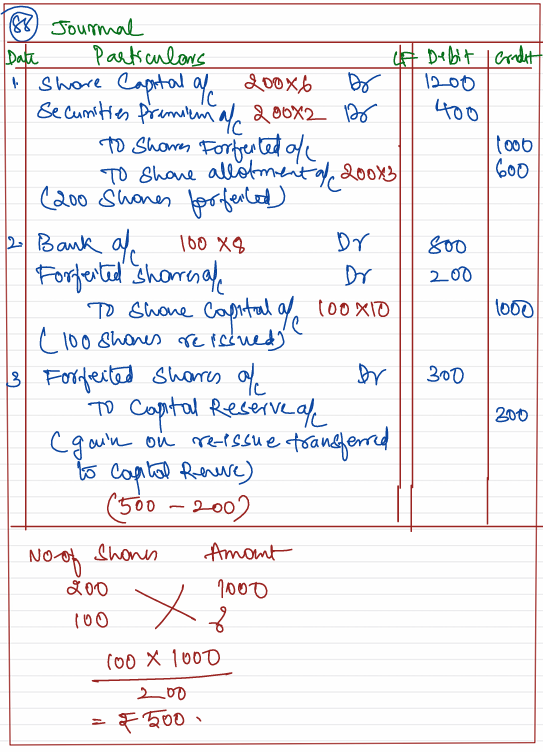 88 Journal
Date Particulars LF Debit Credit
1. Share Capital a/c 200×6 Dr 1200
Securities Premium a/c 200×2 Dr 400
To Shares Forfeited a/c 1000
To Share allotment a/c 200×3 600
(200 Shares forfeited)
2. Bank a/c 100×8 Dr 800
Forfeited shares a/c Dr 200
To Share Capital a/c 100×10 1000
(100 Shares re issued)
3 Forfeited Shares a/c Dr 300
To Capital Reserve a/c 300
(gain on re-issue transferred
to Capital Reserve)
(500 - 200)
No of Shares Amount
200 1000
100 ?
100 × 1000
200
= ₹500.